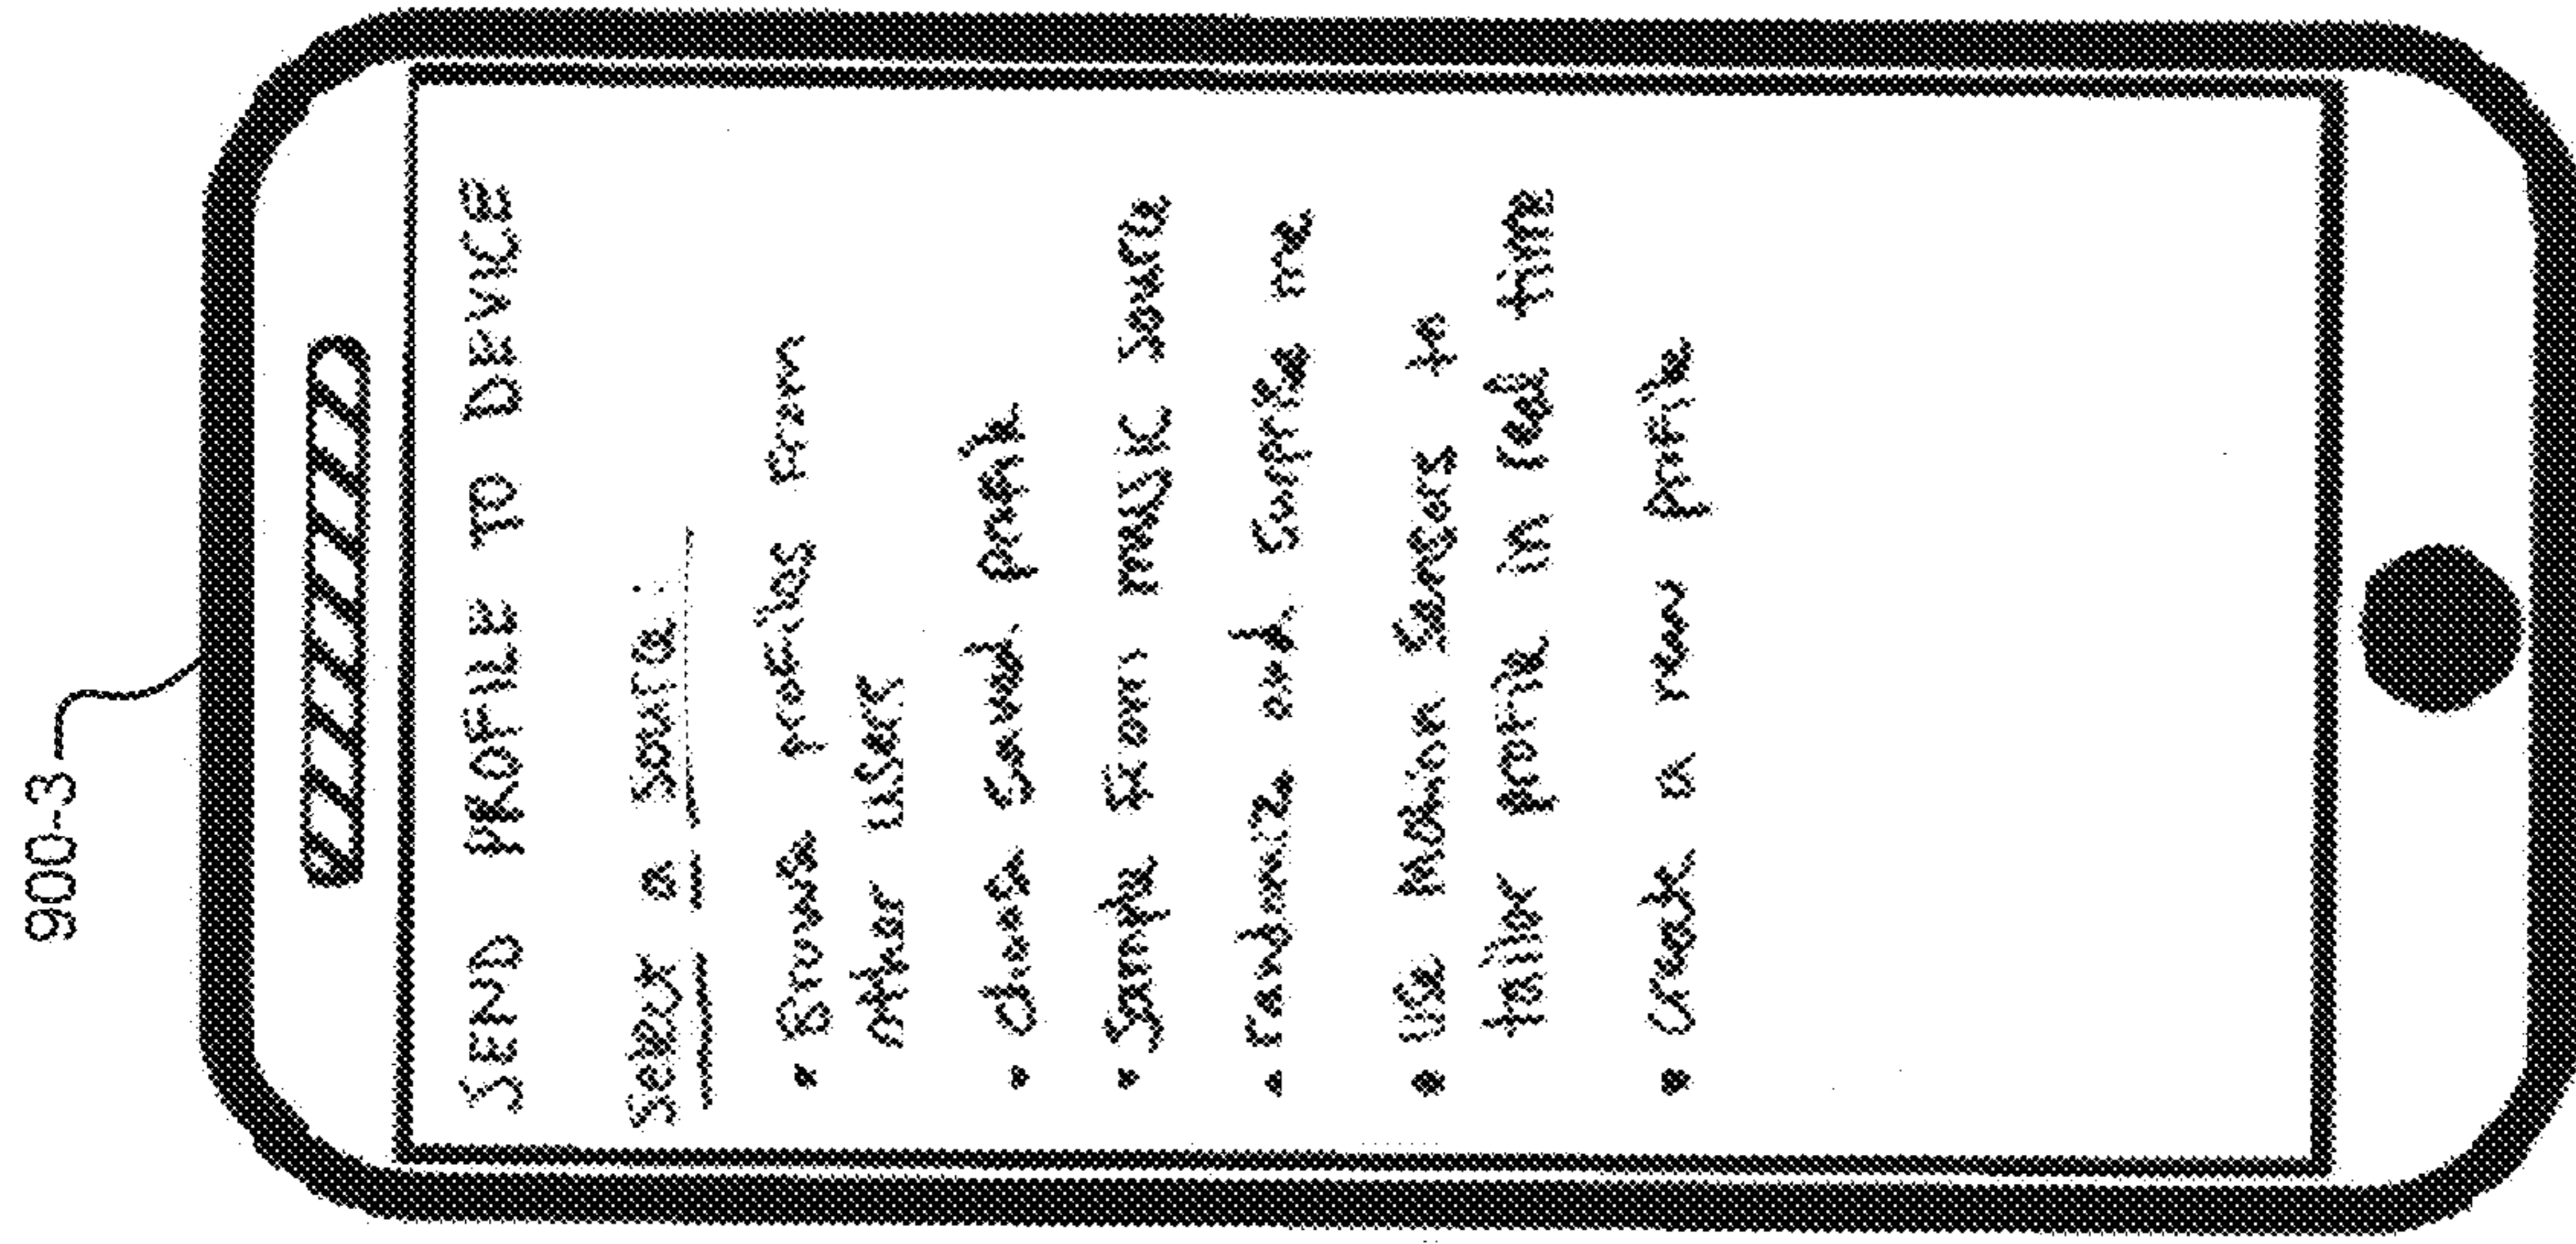 900-3
SEND PROFILE TO DEVICE
Select a source:
• Browse profiles from
other users
• choose saved profile
• Sample from music source
• randomize and surprise me
• use Motion Sensors to
tailor profile in real time
• Create a new profile